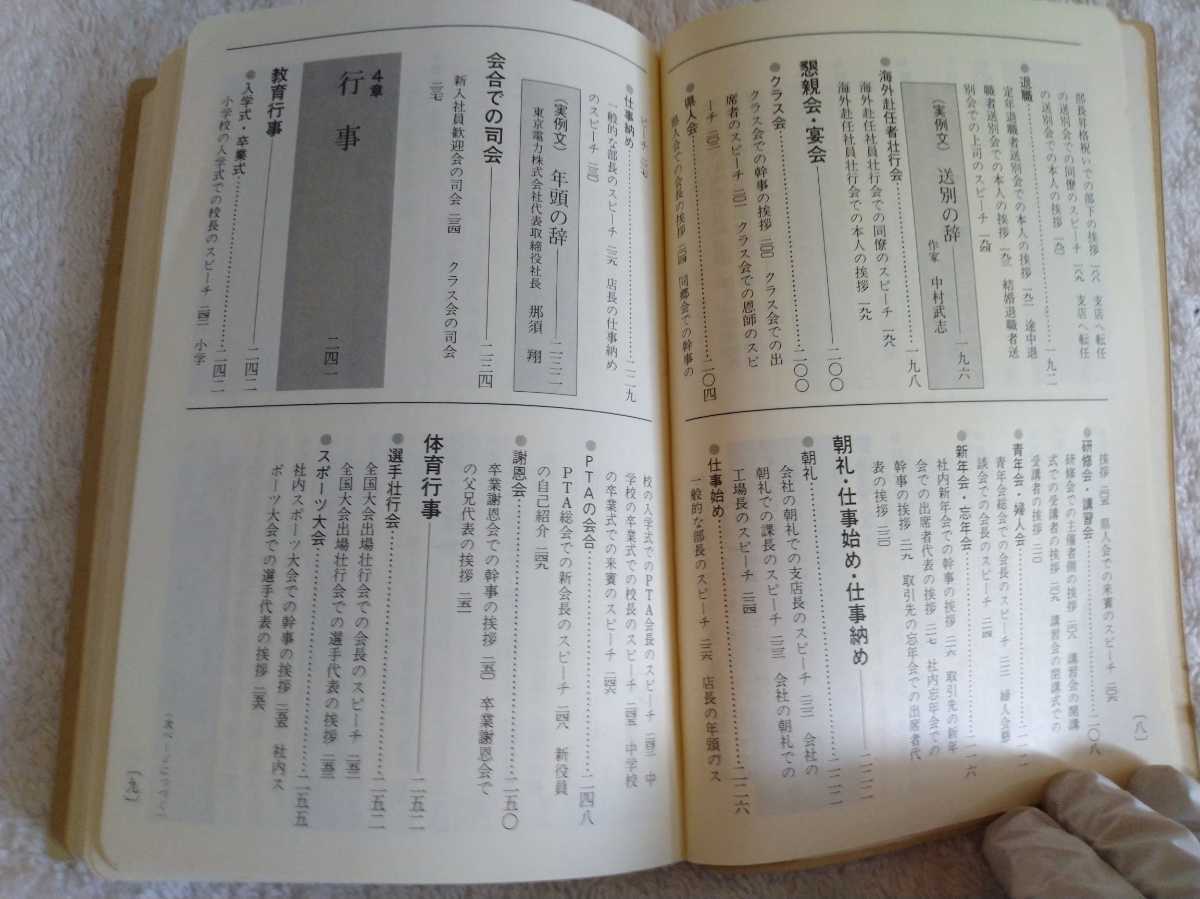 部長昇格祝いでの部下の挨拶 一八八 支店へ転任
の送別会での同僚のスピーチ 一八九 支店へ転任
の送別会での本人の挨拶 一九〇
●退職……一九二
定年退職者送別会での本人の挨拶 一九二 途中退
職者送別会での本人の挨拶 一九三 結婚退職者送
別会での上司のスピーチ 一九四
〈実例文〉 送別の辞――一九六
作家 中村武志
●海外赴任者壮行会……一九八
海外赴任社員壮行会での同僚のスピーチ 一九八
海外赴任社員壮行会での本人の挨拶 一九九
懇親会・宴会――二〇〇
●クラス会……二〇〇
クラス会での幹事の挨拶 二〇〇 クラス会での出
席者のスピーチ 二〇一 クラス会での恩師のスピ
ーチ 二〇二
●県人会……二〇四
県人会での会長の挨拶 二〇四 同郷会での幹事の
挨拶 二〇五 県人会での来賓のスピーチ 二〇六
●研修会・講習会……二〇八
研修会での主催者側の挨拶 二〇八 講習会の開講
式での受講者の挨拶 二〇九 講習会の閉講式での
受講者の挨拶 二一〇
●青年会・婦人会……二一二
青年会総会での会長のスピーチ 二一二 婦人会懇
談会での会長のスピーチ 二一四
●新年会・忘年会……二一六
社内新年会での幹事の挨拶 二一六 取引先の新年
会での出席者代表の挨拶 二一七 社内忘年会での
幹事の挨拶 二一九 取引先の忘年会での出席者代
表の挨拶 二二〇
朝礼・仕事始め・仕事納め――二二二
●朝礼……二二二
会社の朝礼での支店長のスピーチ 二二二 会社の
朝礼での課長のスピーチ 二二三 会社の朝礼での
工場長のスピーチ 二二四
●仕事始め……二二六
一般的な部長のスピーチ 二二六 店長の年頭のス
〔八〕
ピーチ 二二七
●仕事納め……二二九
一般的な部長のスピーチ 二二九 店長の仕事納め
のスピーチ 二三〇
〈実例文〉 年頭の辞――二三二
東京電力株式会社代表取締役社長 那須 翔
会合での司会――二三四
新入社員歓迎会の司会 二三四 クラス会の司会
二三七
4章
行事 二四一
教育行事――二四二
●入学式・卒業式……二四二
小学校の入学式での校長のスピーチ 二四二 小学
校の入学式でのPTA会長のスピーチ 二四三 中
学校の卒業式での校長のスピーチ 二四五 中学校
の卒業式での来賓のスピーチ 二四六
●PTAの会合……二四八
PTA総会での新会長のスピーチ 二四八 新役員
の自己紹介 二四九
●謝恩会……二五〇
卒業謝恩会での幹事の挨拶 二五〇 卒業謝恩会で
の父兄代表の挨拶 二五一
体育行事――二五二
●選手壮行会……二五二
全国大会出場壮行会での会長のスピーチ 二五二
全国大会出場壮行会での選手代表の挨拶 二五三
●スポーツ大会……二五五
社内スポーツ大会での幹事の挨拶 二五五 社内ス
ポーツ大会での選手代表の挨拶 二五六
〔九〕